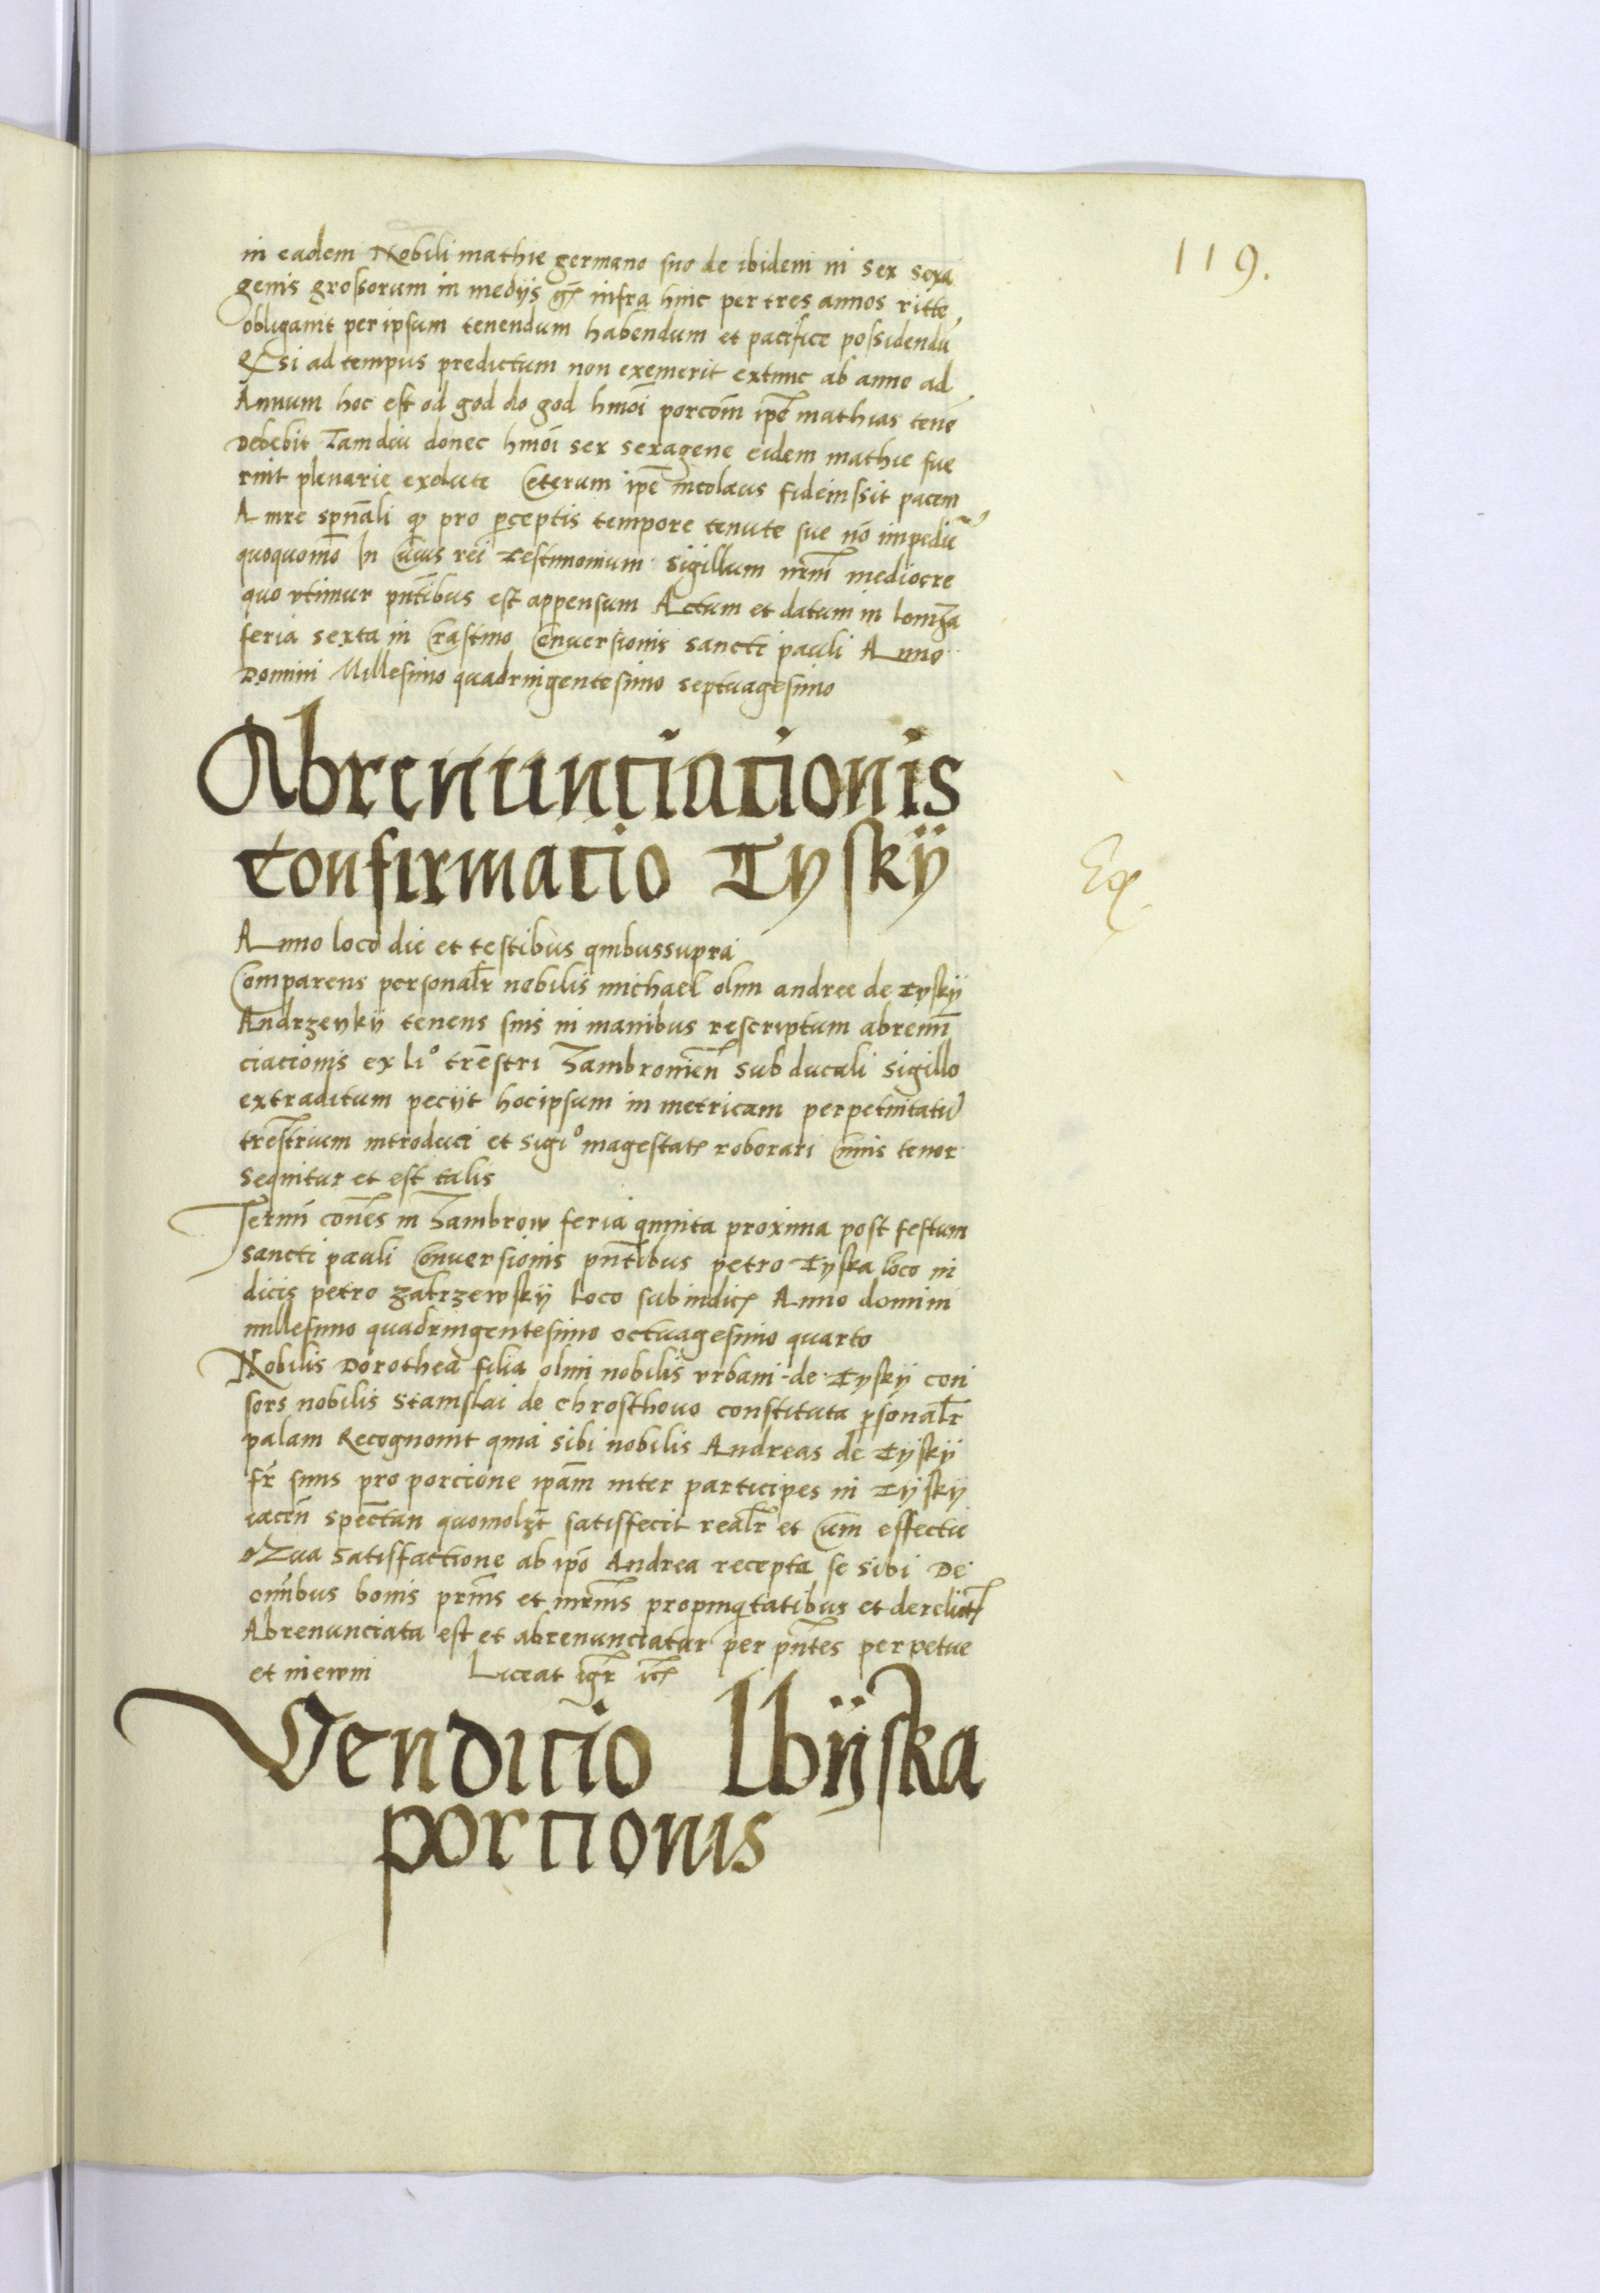 119.
in eadem Nobili mathie germano suo de ibidem in sex sexa
genis grossorum in medijs gr̄ infra hinc per tres annos ritte
obligauit per ipsum tenendum habendum et pacifice possidendū
Et si ad tempus predictum non exemerit extunc ab anno ad
Annum hoc est od god do god hmōi porcōm ip̄e mathias tenē
Debebit Tamdiu donec hmōi sex sexagene eidem mathie fue
rint plenarie exolute Ceterum ip̄e nicolaus fideiussit pacem
A mre spūali q pro perceptis tempore tenute sue nō impediū
quoquomō In Cuius rei testimonium Sigillum nrm̄ mediocre
quo vtimur pn̄tibus est appensum Actum et datum in lomza
feria sexta in Crastino Conuersionis sancti pauli Anno
Domini Millesimo quadringentesimo septuagesimo
Abrenunciacionis
Confirmacio Tyskij
Anno loco die et testibus quibussupra
Comparens personalr̄ nobilis michael olim andree de Tyskij
Andrzeykij tenens suis in manibus rescriptum abrenū
ciacionis ex li° trēstri Zambromien̄ sub ducali sigillo
extraditum pecijt hocipsum in metricam perpetuitatū
trēstrium introduci et sigi° magestatē roborari Cuius tenor
sequitur et est talis
Termī conēs in Zambrow feria quinta proxima post festum
sancti pauli Conuersionis pn̄tibus petro Tyska loco iu
dicis petro zakrzewskij loco subiudicē Anno domini
millesimo quadringentesimo octuagesimo quarto
Nobilis Dorothea filia olim nobilis vrbani de Tyskij con
sors nobilis Stanislai de chrosthouo constituta psonalr̄
palam Recognouit quia sibi nobilis Andreas de Tyskij
fr̄ suus pro porcione ipām inter participes in Tyskij
iacēn spectan quomolz̄t satisfecit realr̄ et Cum effectu
Qua satisfactione ab ipō Andrea recepta se sibi De
om̄ibus bonis prnīs et mrnīs propinq̄tatibus et derelictē
Abrenunciata est et abrenunciatur per pn̄tes perpetue
et in ewm Liceat igr̄ itē
Vendicio lbijska
porcionis